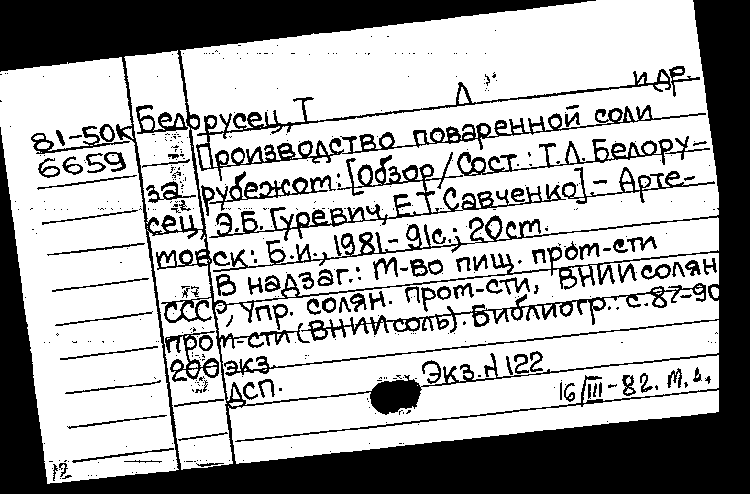 Белорусец, Т Л и др.
81-50К
6659
Производство поваренной соли
за рубежом: [Обзор/Сост.: Т.Л. Белору-
сец, Э.Б. Гуревич, Е.Т. Савченко]. - Арте-
мовск: Б.и., 1981. - 91с.; 20 cm.
В надзаг.: М-во пищ. пром-сти
СССР, Упр. солян. пром-сти, ВНИИ солян
пром-сти (ВНИИсоль). Библиогр.: с. 87-90
200 экз.
ДСП. Экз. N 122.
16/III-82. М.Д.
12